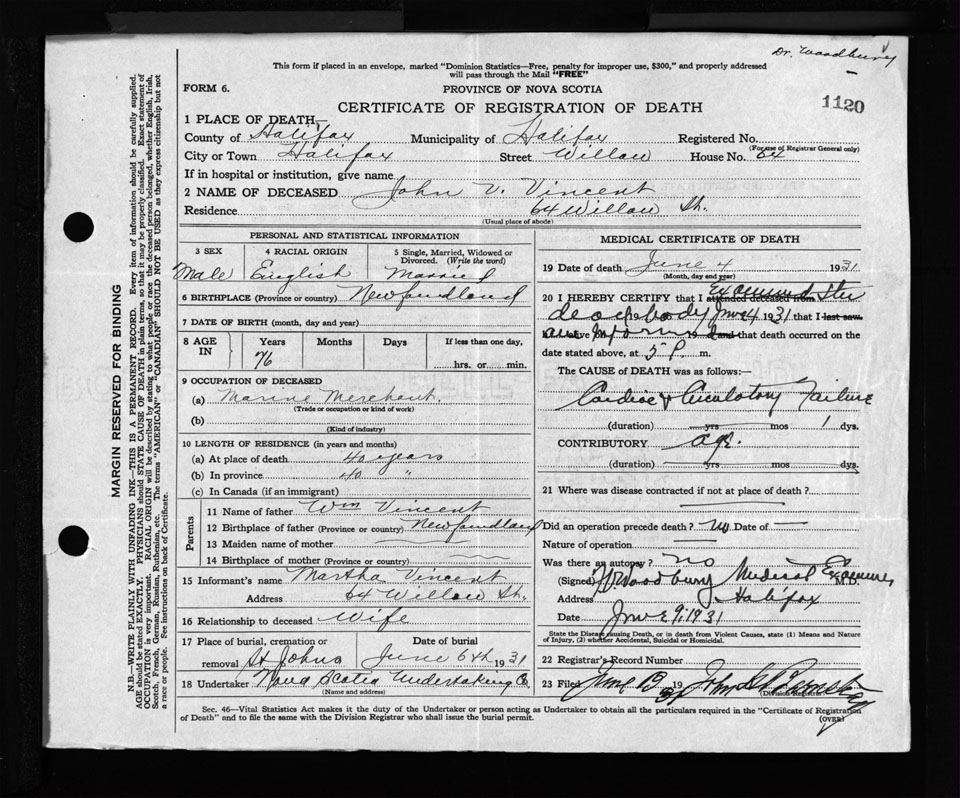 Dr. Woodbury
This form if placed in an envelope, marked "Dominion Statistics—Free, penalty for improper use, $300," and properly addressed
will pass through the Mail "FREE"
FORM 6. PROVINCE OF NOVA SCOTIA
CERTIFICATE OF REGISTRATION OF DEATH 1120
1 PLACE OF DEATH—
County of Halifax Municipality of Halifax Registered No.
(For use of Registrar General only)
City or Town Halifax Street Willow House No. 64
If in hospital or institution, give name
2 NAME OF DECEASED John V. Vincent
Residence 64 Willow St.
(Usual place of abode)
PERSONAL AND STATISTICAL INFORMATION
3 SEX 4 RACIAL ORIGIN 5 Single, Married, Widowed or
Divorced. (Write the word)
Male English Married
6 BIRTHPLACE (Province or country) Newfoundland
7 DATE OF BIRTH (month, day and year)
8 AGE IN Years Months Days If less than one day,
76 hrs. or min.
9 OCCUPATION OF DECEASED
(a) Marine Merchant
(Trade or occupation or kind of work)
(b)
(Kind of industry)
10 LENGTH OF RESIDENCE (in years and months)
(a) At place of death 40 years
(b) In province 40 "
(c) In Canada (if an immigrant)
Parents
11 Name of father Wm Vincent
12 Birthplace of father (Province or country) Newfoundland
13 Maiden name of mother —
14 Birthplace of mother (Province or country) —
15 Informant's name Martha Vincent
Address 64 Willow St.
16 Relationship to deceased Wife
17 Place of burial, cremation or Date of burial
removal St Johns June 6th 1931
18 Undertaker Nova Scotia Undertaking Co
(Name and address)
MEDICAL CERTIFICATE OF DEATH
19 Date of death June 4 1931
(Month, day and year)
20 I HEREBY CERTIFY that I attended deceased from examined the
dead body June 4 1931 that I last saw
and that death occurred on the
date stated above, at 5 P. m.
The CAUSE of DEATH was as follows:—
Cardiac & Circulatory Failure
(duration) yrs mos 1 dys.
CONTRIBUTORY age.
(duration) yrs mos dys.
21 Where was disease contracted if not at place of death? —
Did an operation precede death? no Date of —
Nature of operation —
Was there an autopsy? no
(Signed) Woodbury Medical Examiner
Address Halifax
Date June 9, 1931
State the Disease causing Death, or in death from Violent Causes, state (1) Means and Nature
of Injury, (2) whether Accidental, Suicidal or Homicidal.
22 Registrar's Record Number
23 Filed June 19 1931 John
(Division Registrar)
Sec. 46—Vital Statistics Act makes it the duty of the Undertaker or person acting as Undertaker to obtain all the particulars required in the "Certificate of Registration
of Death" and to file the same with the Division Registrar who shall issue the burial permit. (OVER)
MARGIN RESERVED FOR BINDING
N.B.—WRITE PLAINLY WITH UNFADING INK—THIS IS A PERMANENT RECORD. Every item of information should be carefully supplied.
AGE should be stated EXACTLY. PHYSICIANS should STATE CAUSE OF DEATH in plain terms, so that it may be properly classified. Exact statement of
OCCUPATION is very important. RACIAL ORIGIN will be described by stating to what people or race the deceased person belonged, whether English, Irish,
Scotch, French, German, Russian, Ruthenian, etc. The terms "AMERICAN" or "CANADIAN" SHOULD NOT BE USED as they express citizenship but not
a race or people. See instructions on back of Certificate.